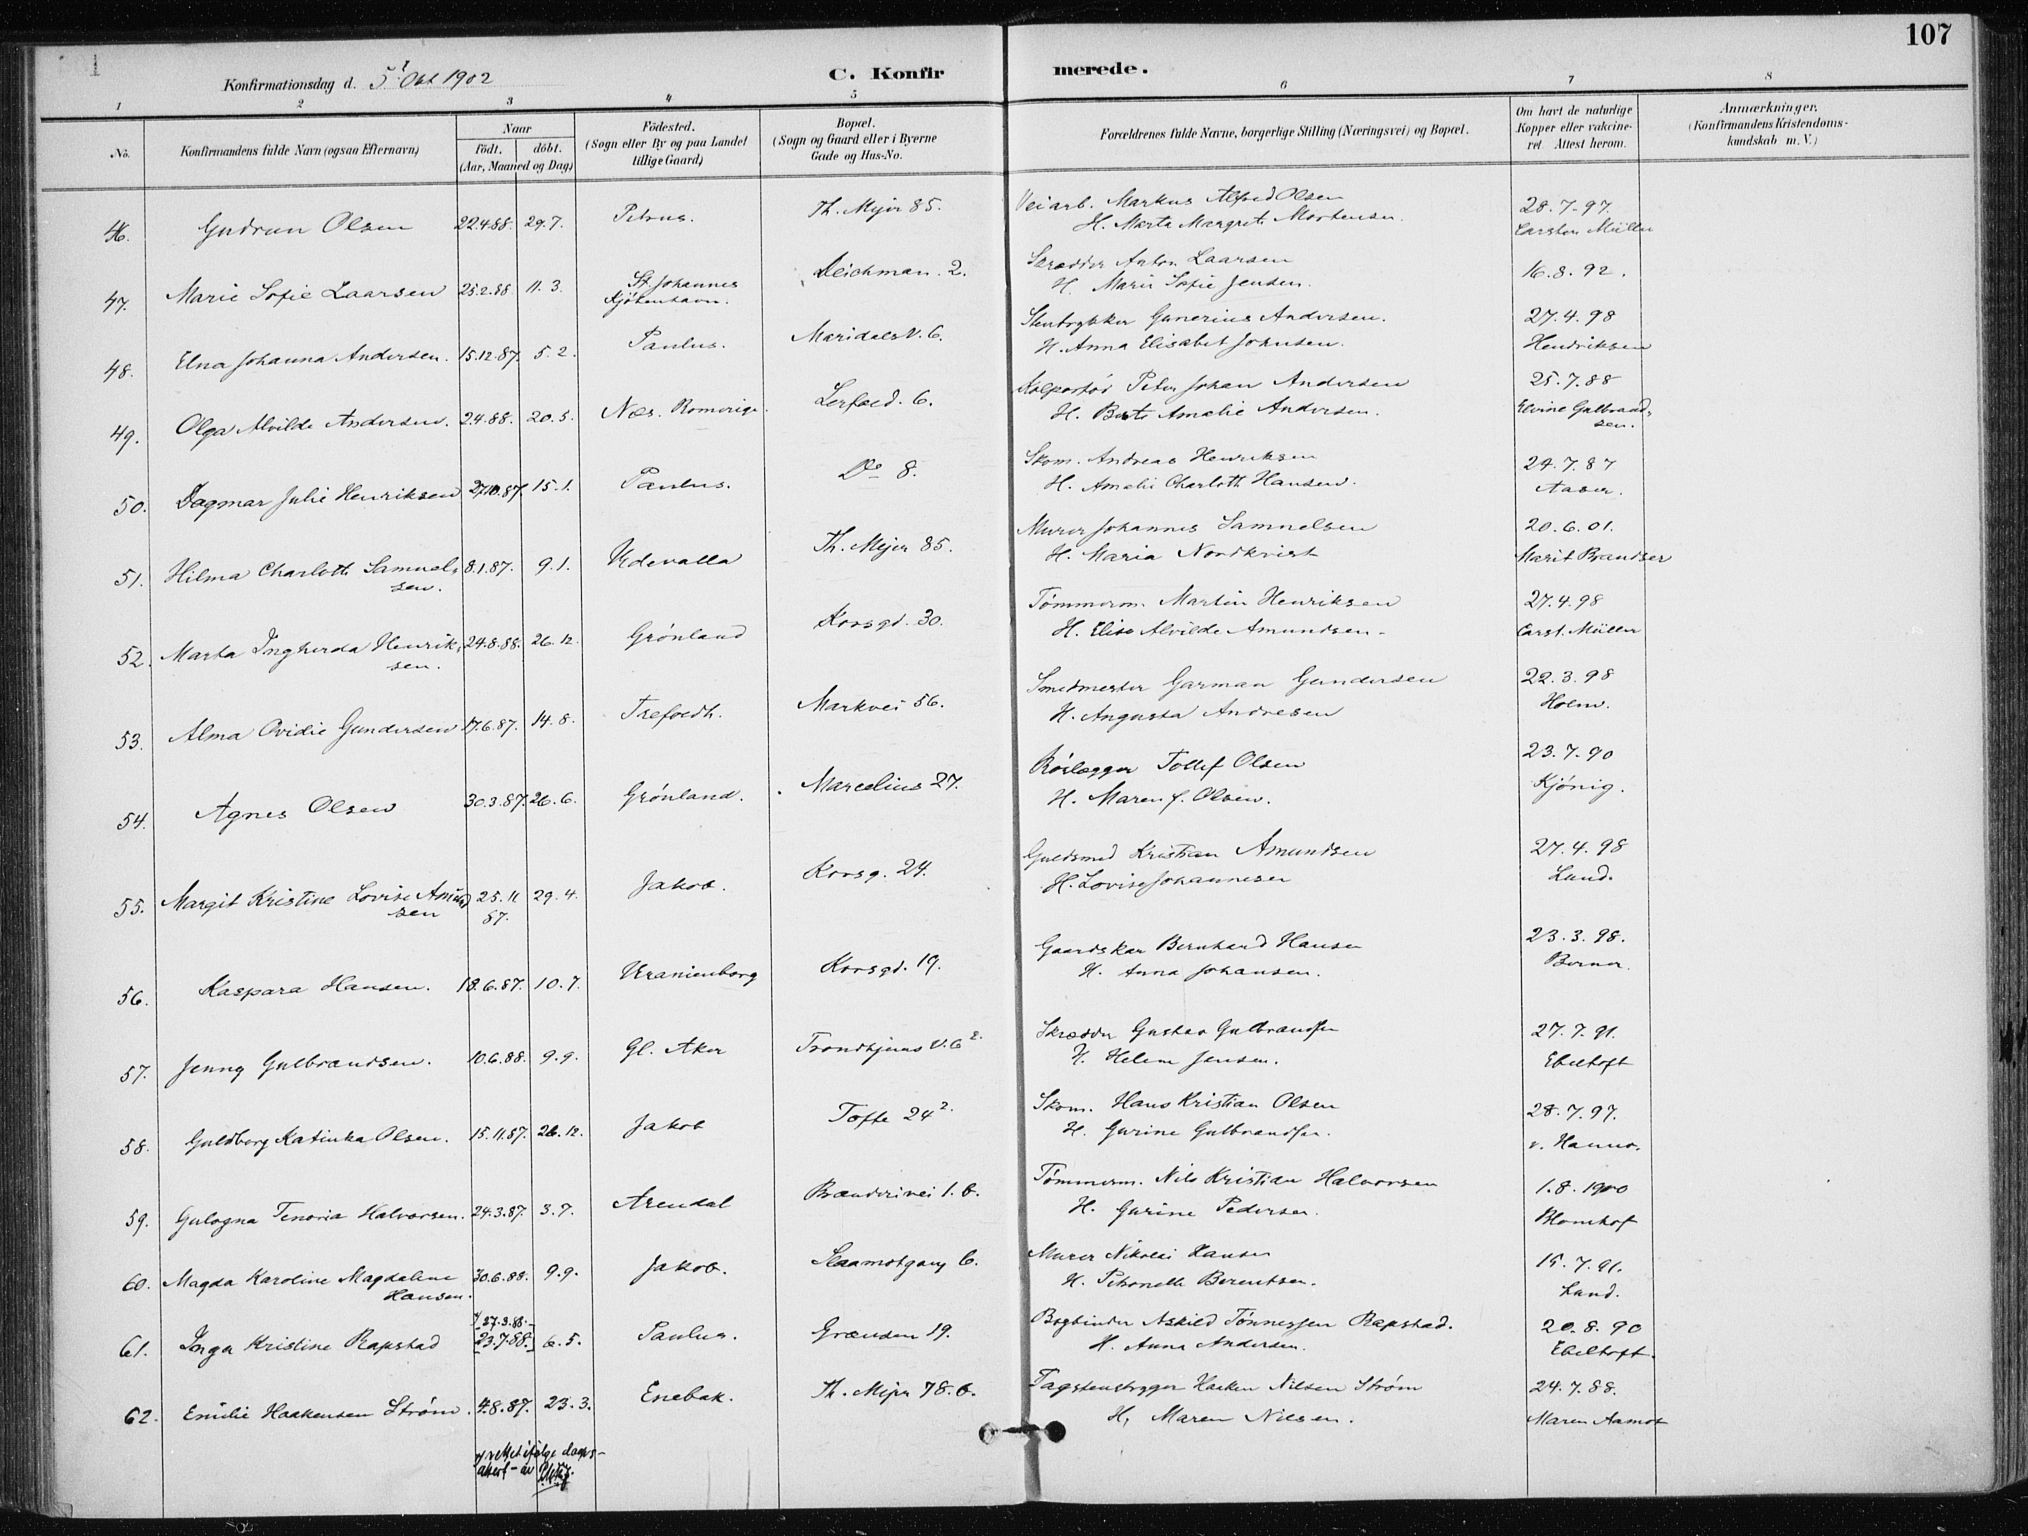 107
Konfirmationsdag d. 5' Okt 1902
C. Konfirmerede.
1 2 3 4 5 6 7 8
No.
Konfirmandens fulde Navn (ogsaa Efternavn)
Naar
födt. döbt.
(Aar, Maaned og Dag)
Födested.
(Sogn eller By og paa Landet
tillige Gaard)
Bopæl.
(Sogn og Gaard eller i Byerne
Gade og Hus-No.
Forældrenes fulde Navne, borgerlige Stilling (Næringsvei) og Bopæl.
Om havt de naturlige
Kopper eller vakcine-
ret Attest herom.
Anmærkninger.
(Konfirmandens Kristendoms-
kundskab m. V.)
46. Gudrun Olsen 22.4.88. 29.7. Petrus. Th. Mejer 85. Veiarb. Markus Alfred Olsen 28.7.97.
H. Marta Margrete Mortensen. Carsten Müller
47. Marie Sofie Laarsen 25.2.88 11.3. St. Johannes Deichman. 2. Skrædder Anton Laarsen 16.8.92.
Kjøbenhavn. H. Marie Sofie Jensen.
48. Elna Johanna Andersen. 15.12.87 5.2. Paulus. Maridals V. 6. Stenhygger Gunerius Andersen. 27.4.98
H. Anna Elisabet Johnsen. Hendriksen
49. Olga Alvilde Andersen. 2.4.88. 20.5. Næs. Romerige. Lerfoed. 6. Kolportør Peter Johan Andersen 25.7.88
H. Berte Amalie Andersen. Elvine Gulbrand-
sen.
50. Dagmar Julie Henriksen 27.10.87. 15.1. Paulus. Do 8. Skom. Andreas Henriksen 29.7.87
H. Amalie Charlotte Hansen. Aaser.
51. Hilma Charlotte Samuel- 8.1.87. 9.1. Udevalla Th. Mejer 85. Murer Johannes Samuelsen 20.6.01.
sen. H. Maria Nordkvist Marit Brandser
52. Marta Ingherda Henrik- 24.8.88. 26.12. Grönland Korsgd. 30. Tømmerm. Martin Henriksen 27.4.98
sen. H. Elise Alvilde Amundsen. Carst. Müller
53. Alma Ovidie Gundersen 17.6.87. 14.8. Trefoedh. Markvei 56. Smedmester Garman Gundersen 22.3.98
H. Augusta Andresen Holm.
54. Agnes Olsen 30.3.87. 26.6. Grönland. Marcelius 27. Rörlægger Tollef Olsen 23.7.90
H. Maren f. Olsen. Kjönig.
55. Margit Kristine Lovise Amund 25.11 29.4. Jakob. Korsg. 24. Guldsmed Kristian Amundsen 27.4.98
sen 87. H. Lovise Johannesen Lund.
56. Kaspara Hansen. 18.6.87. 10.7. Uranienborg Korsgd. 19. Gaardskar Bernhard Hansen 23.3.98.
H. Anna Johansen. Berner.
57. Jenny Gulbrandsen. 10.6.88. 9.9. Gl. Aker Trondhjems V. 6 2. Skrædder Gustav Gulbrandsen 27.7.91.
H. Helene Jensen. Ebeltoft
58. Guldborg Katinka Olsen. 15.11.87. 26.12. Jakob Tofte 24 2. Skom. Hans Kristian Olsen 28.7.97.
H. Gurine Gulbrandsen. v. Hanno.
59. Gulogna Tenoria Halvorsen. 24.3.87. 3.7. Arendal Brænderivei 1. b. Tømmerm. Nils Kristian Halvorsen 1.8.1900
H. Gurine Pedersen. Blomhof
60. Magda Karoline Magdalene 30.6.88. 9.9. Jakob. Slaamotgang 6. Murer Nikolai Hansen 15.7.91.
Hansen. H. Petronelle Berentsen. Lund.
x) 27.3.88.
61. Inga Kristine Rapstad [23.7.88.] 6.5. Paulus. Grænsen 19. Bogbinder Askild Tønnessen Rapstad. 20.8.90
H. Anna Andersen. Ebeltoft.
62. Emilie Haakensen Strøm. 4.8.87. 23.3. Enebak. Th. Mejer 78. b. Tagstenstygger Haaken Nilsen Strøm 24.7.88.
H. Maren Nilsen. Maren Aamot
x) rettet ifølge daaps-
attest - av